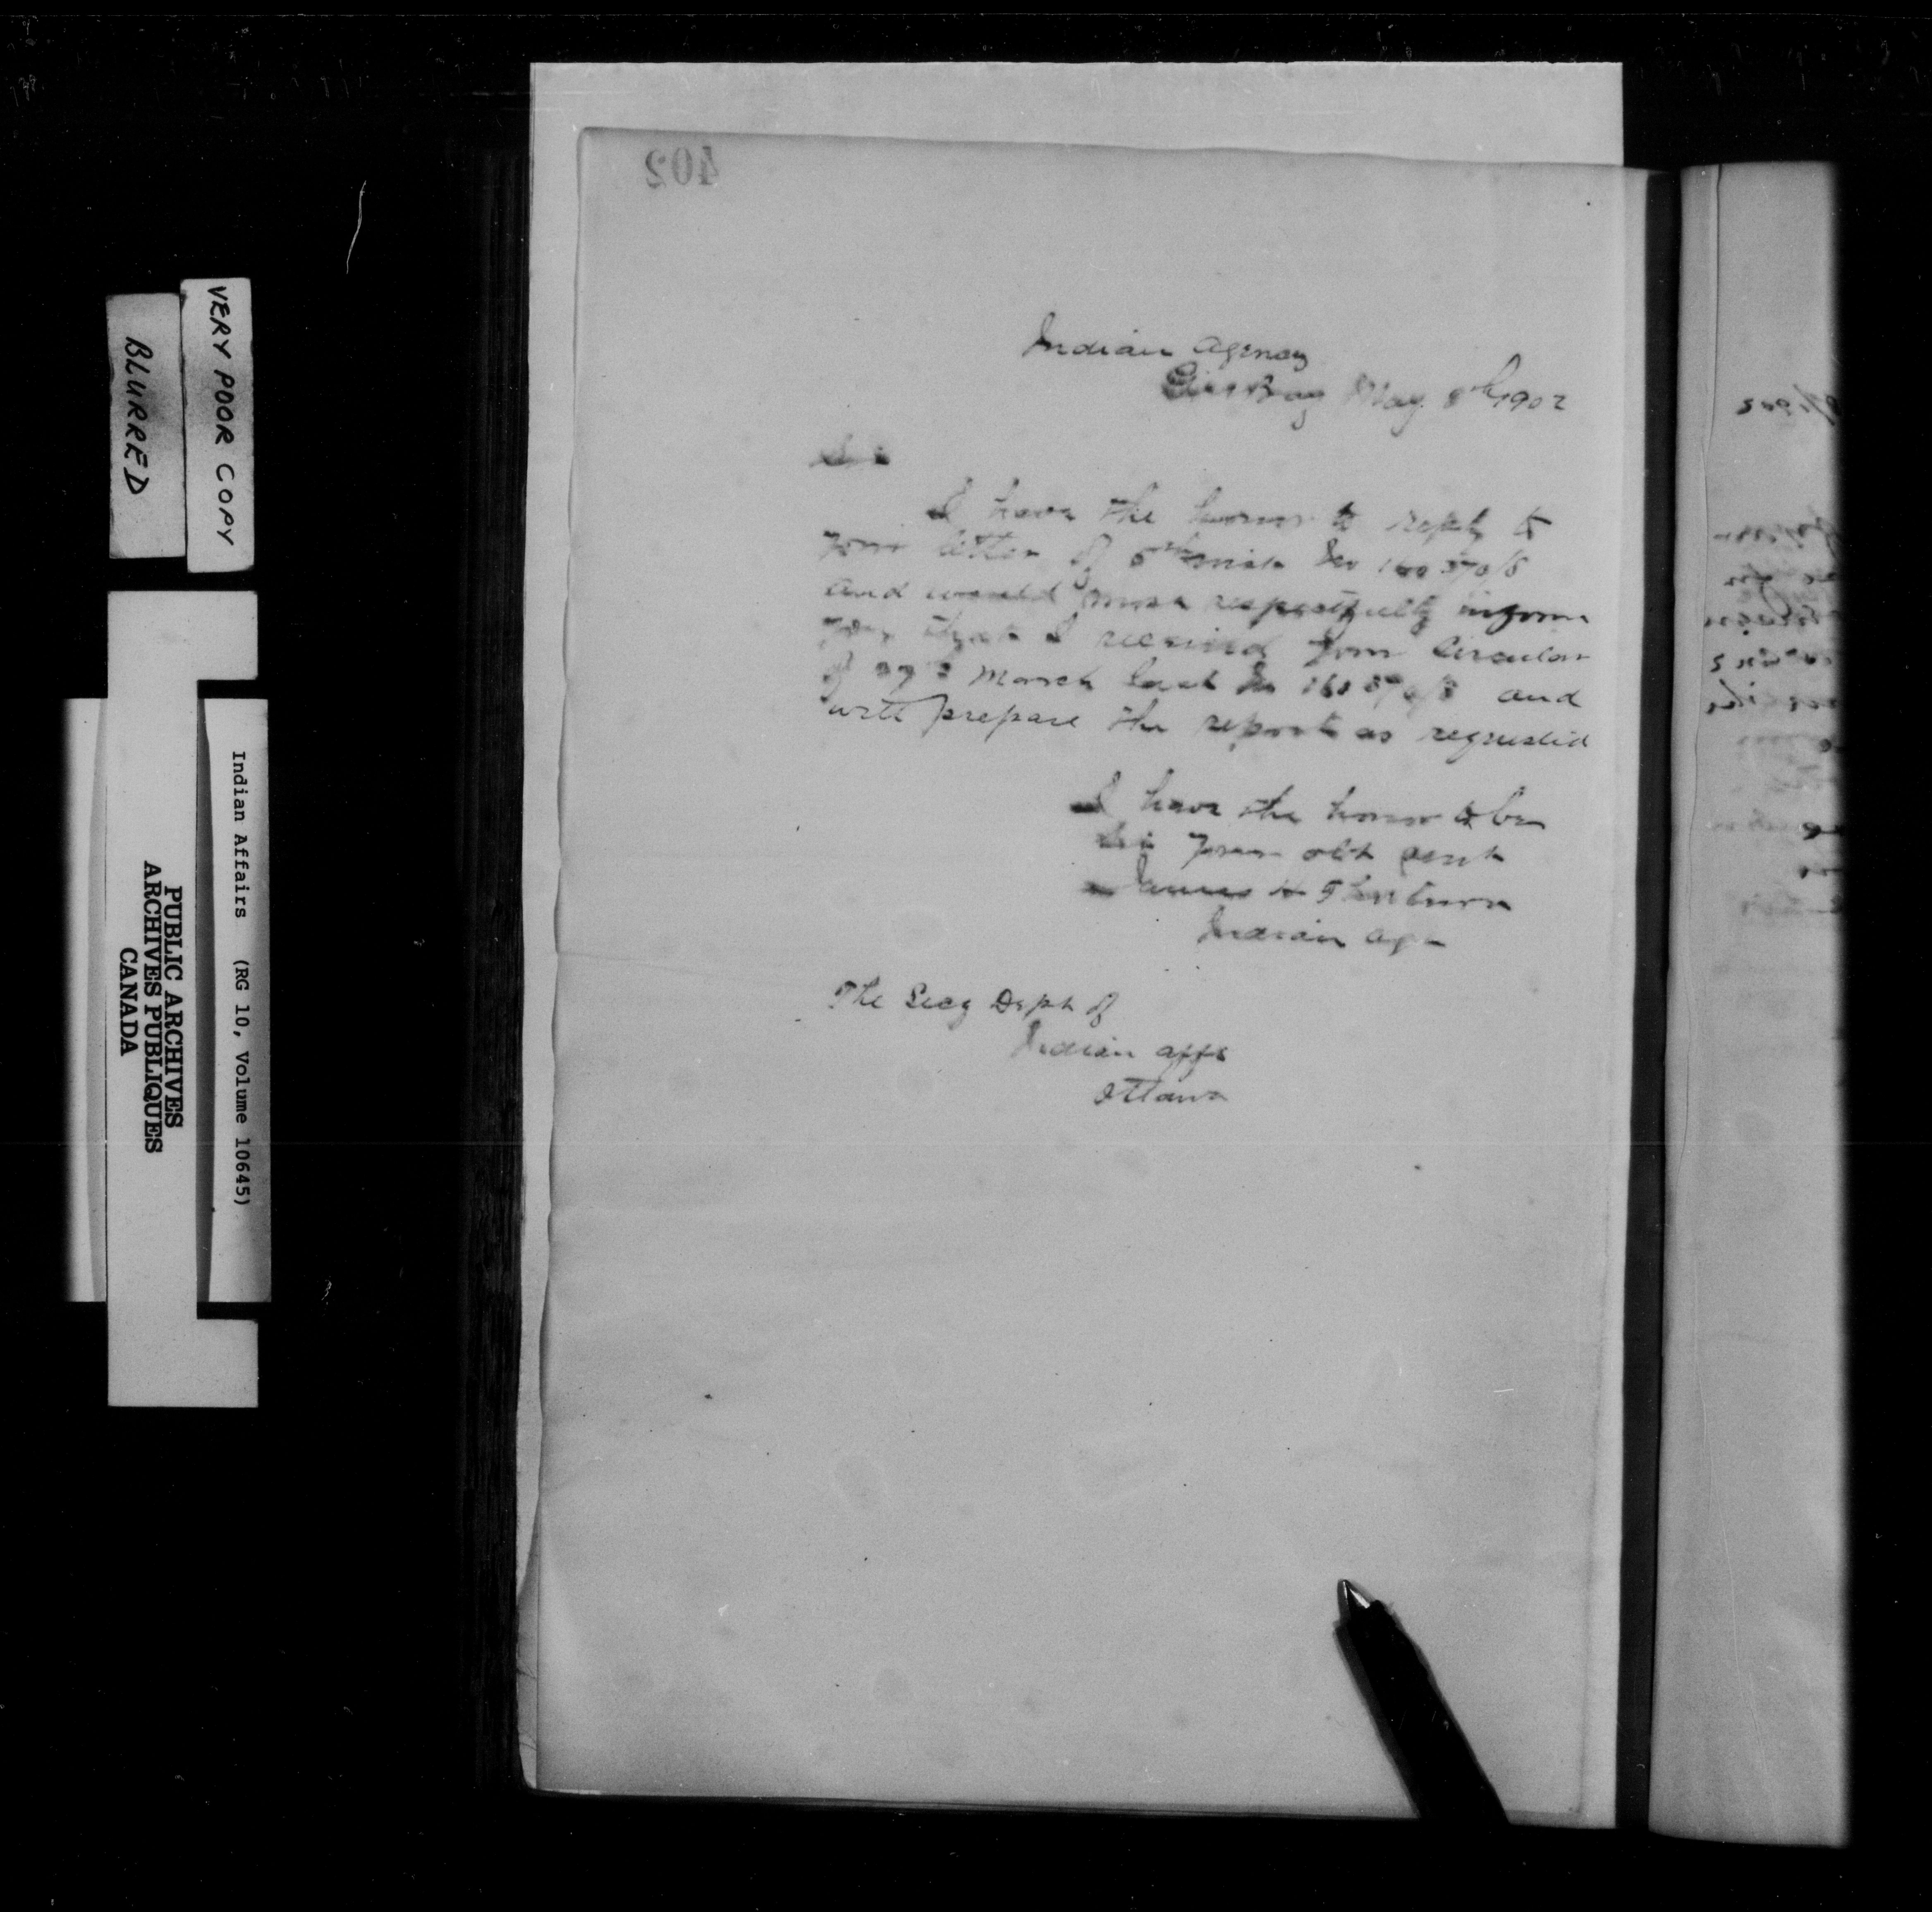 402
Indian Agency
May 8th 1902
Sir
I have the honor to reply to
your letter of 5th inst No
and would most respectfully inform
you that I received your Circular
of March last No and
will prepare the report as requested
I have the honor to be
Sir your obt servt
James H Thorburn
Indian Agt
The Secy Dept of
Indian affs
Ottawa
VERY POOR COPY
BLURRED
Indian Affairs (RG 10, Volume 10645)
PUBLIC ARCHIVES
ARCHIVES PUBLIQUES
CANADA